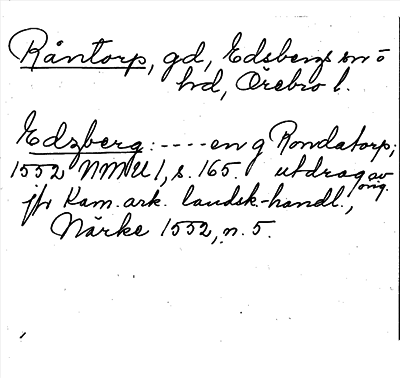 Råntorp, gd, Edsbergs sn o
hd, Örebro l.
Edzberg: ---- en g Rondatorp;
1552 NMU 1, s. 165. utdrag av
orig.
jfr Kam. ark. landsk.-handl.,
Närke 1552, n. 5.